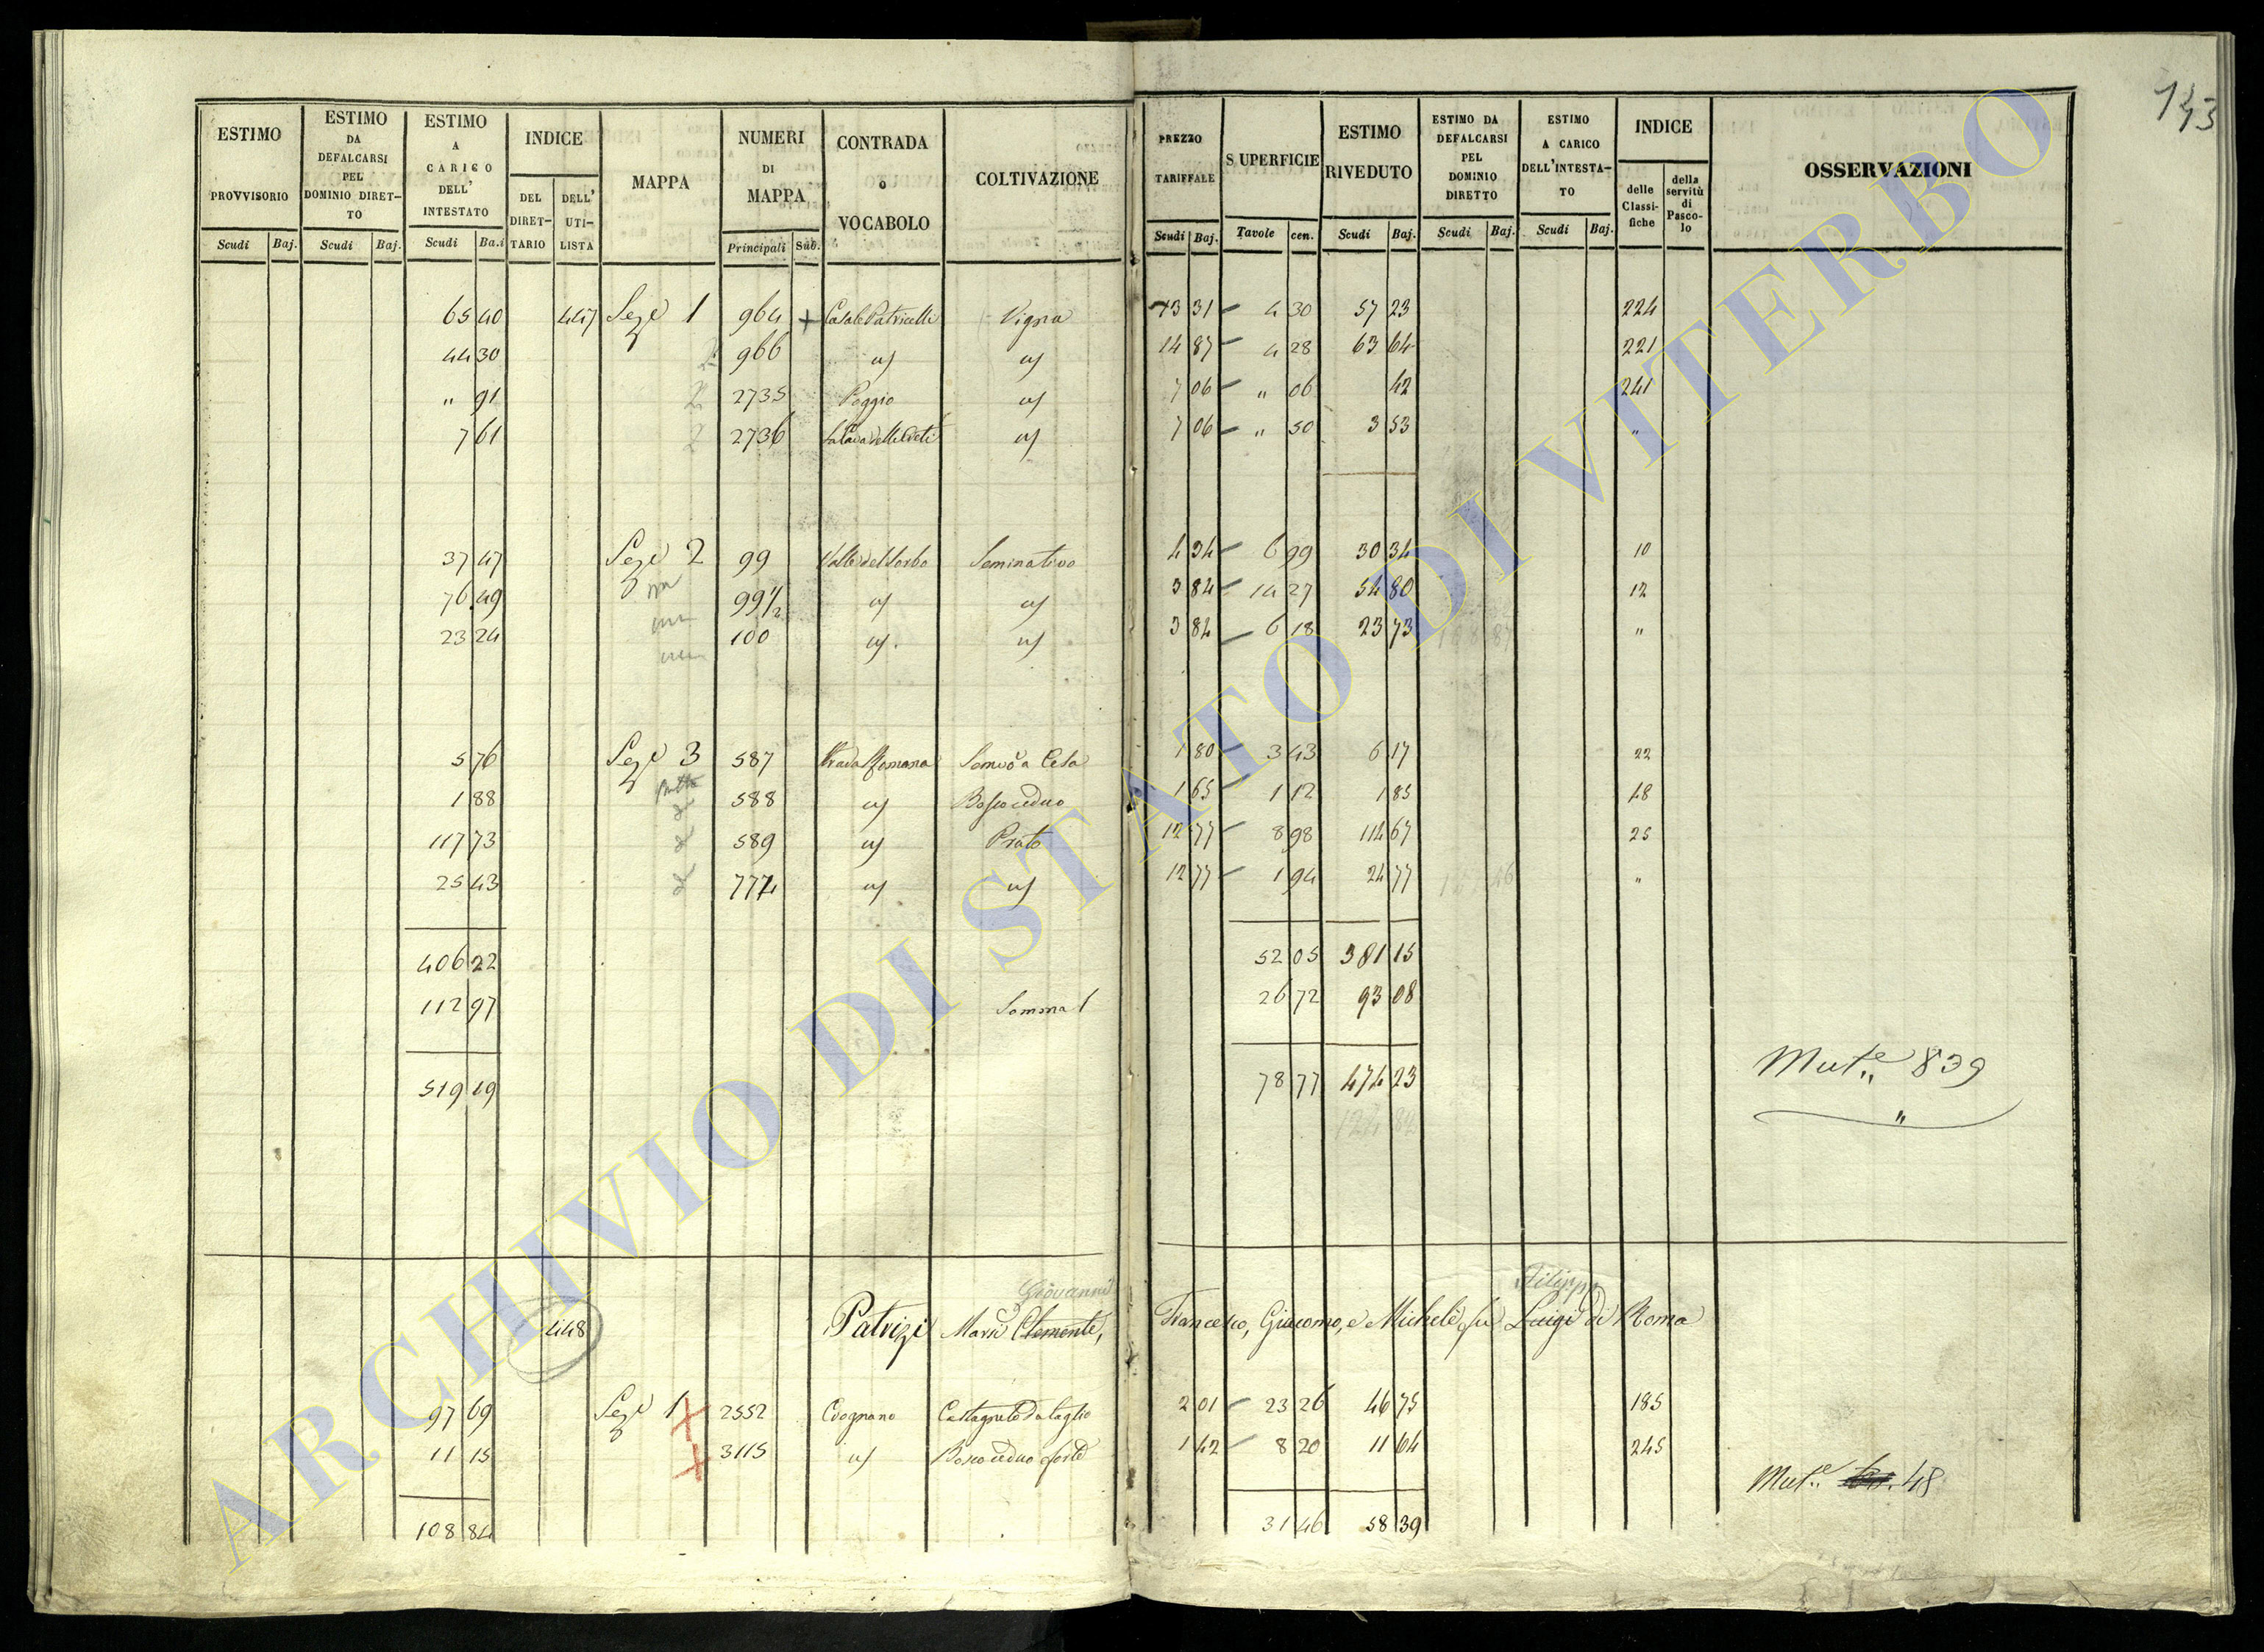 143
ESTIMO PROVVISORIO Scudi Baj.
ESTIMO DA DEFALCARSI PEL DOMINIO DIRET-TO Scudi Baj.
ESTIMO A CARICO DELL' INTESTATO Scudi Ba.i
INDICE DEL DIRET-TARIO DELL' UTI-LISTA
MAPPA
NUMERI DI MAPPA Principali Sub.
CONTRADA o VOCABOLO
COLTIVAZIONE
PREZZO TARIFFALE Scudi Baj.
SUPERFICIE Tavole cen.
ESTIMO RIVEDUTO Scudi Baj.
ESTIMO DA DEFALCARSI PEL DOMINIO DIRETTO Scudi Baj.
ESTIMO A CARICO DELL'INTESTA-TO Scudi Baj.
INDICE delle Classi-fiche della servitù di Pasco-lo
OSSERVAZIONI
65 40 447 Seze 1 964 + Casale Patricelli Vigna 13 31 4 30 57 23 224
44 30 966 " " 14 87 4 28 63 64 221
" 91 2735 Poggio " 7 06 " 06 42 241
7 61 2736 " 7 06 " 50 3 53 "
37 47 Seze 2 99 Valle del Sorbo Seminativo 4 34 6 99 30 34 10
76 49 99 1/2 " " 3 84 14 27 54 80 12
23 24 100 " " 3 84 6 18 23 73 "
5 76 Seze 3 587 Strada Romana Semvo a Cesa 1 80 3 43 6 17 22
1 88 588 " Bosco ceduo 1 65 1 12 1 85 18
117 73 589 " Prato 12 77 8 98 114 67 25
25 43 774 " " 12 77 1 94 24 77 "
406 22 52 05 381 15
112 97 Somma 26 72 93 08
519 19 78 77 474 23
Mute 839
Giovanni Filippo
448 Patrizi Marse Clemente, Francesco, Giacomo, e Michele fu Luigi di Roma
97 69 Seze 1 2552 Cognano Castagneto da taglio 2 01 23 26 46 75 185
11 15 3115 " Bosco ceduo forte 1 42 8 20 11 64 245
Mute 48
108 84 31 46 58 39
ARCHIVIO DI STATO DI VITERBO